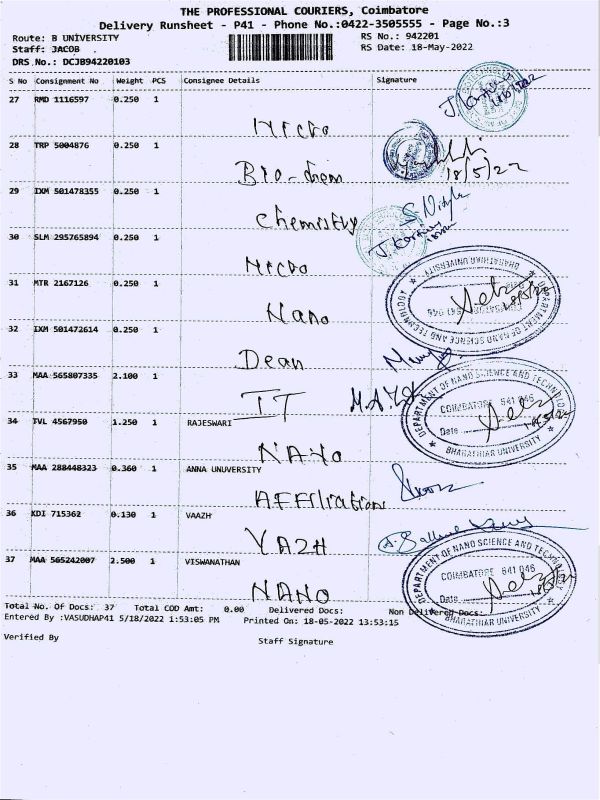 THE PROFESSIONAL COURIERS, Coimbatore
Delivery Runsheet - P41 - Phone No.:0422-3505555 - Page No.:3
Route: B UNIVERSITY RS No.: 942201
Staff: JACOB RS Date: 18-May-2022
DRS No.: DCJB94220103
S No Consignment No Weight PCS Consignee Details Signature
27 RMD 1116597 0.250 1
Micro
28 TRP 5004876 0.250 1
Bio-chem 18/5/22
29 IXM 501478355 0.250 1
Chemistry
30 SLM 295765894 0.250 1
Micro
31 MTR 2167126 0.250 1
Nano
DEPARTMENT OF NANO SCIENCE AND TECHNOLOGY
BHARATHIAR UNIVERSITY
32 IXM 501472614 0.250 1
Dean
33 MAA 565807335 2.100 1
IT
34 TVL 4567950 1.250 1 RAJESWARI
NANO
DEPARTMENT OF NANO SCIENCE AND TECHNOLOGY
COIMBATORE 641 046
Date
BHARATHIAR UNIVERSITY
35 MAA 288448323 0.360 1 ANNA UNUVERSITY
Affiliation
36 KDI 715362 0.130 1 VAAZH
YAZH
37 MAA 565242007 2.500 1 VISWANATHAN
NANO
DEPARTMENT OF NANO SCIENCE AND TECHNOLOGY
COIMBATORE 641 046
Date
BHARATHIAR UNIVERSITY
Total No. Of Docs: 37 Total COD Amt: 0.00 Delivered Docs: Non Delivered Docs:
Entered By :VASUDHAP41 5/18/2022 1:53:05 PM Printed On: 18-05-2022 13:53:15
Verified By Staff Signature